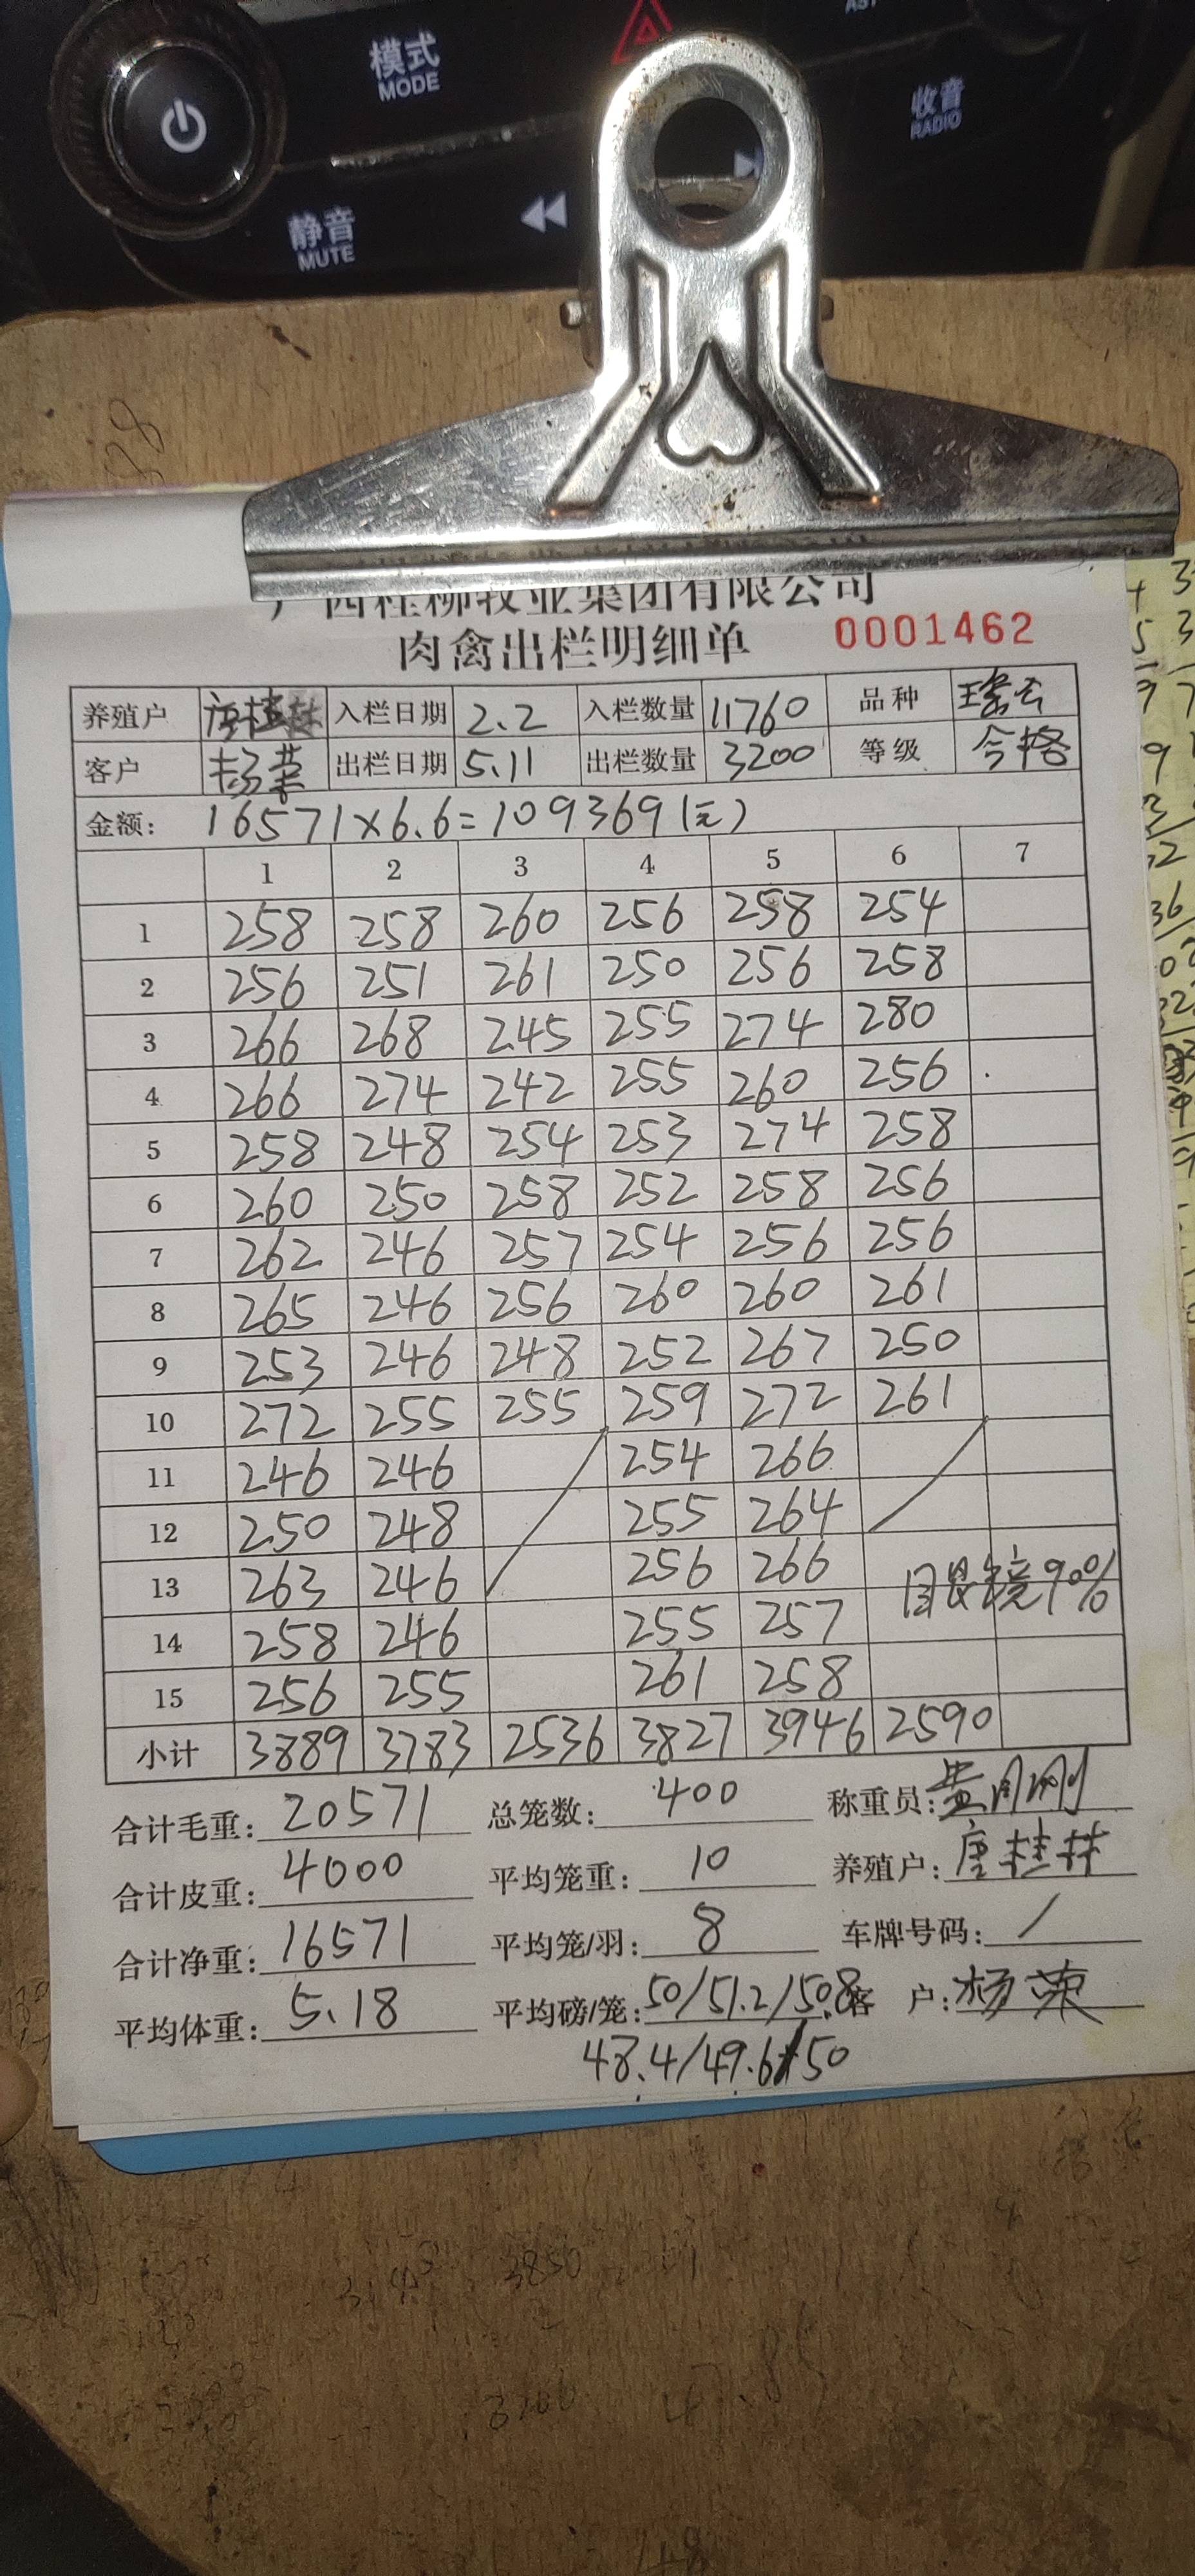 模式
MODE
AST
收音
RADIO
静音
MUTE
广西桂柳牧业集团有限公司
肉禽出栏明细单 0001462
养殖户 唐桂林 入栏日期 2.2 入栏数量 11760 品种
客户 杨荣 出栏日期 5.11 出栏数量 3200 等级 合格
金额: 16571×6.6=109369(元)
1 2 3 4 5 6 7
1 258 258 260 256 258 254
2 256 251 261 250 256 258
3 266 268 245 255 274 280
4 266 274 242 255 260 256
5 258 248 254 253 274 258
6 260 250 258 252 258 256
7 262 246 257 254 256 256
8 265 246 256 260 260 261
9 253 246 248 252 267 250
10 272 255 255 259 272 261
11 246 246 254 266
12 250 248 255 264
13 263 246 256 266
眼镜90%
14 258 246 255 257
15 256 255 261 258
小计 3889 3783 2536 3827 3946 2590
合计毛重: 20571 总笼数: 400 称重员:
合计皮重: 4000 平均笼重: 10 养殖户: 唐桂林
合计净重: 16571 平均笼/羽: 8 车牌号码: /
平均体重: 5.18 平均磅/笼: 50/51.2/50.8 客 户: 杨荣
48.4/49.6/50